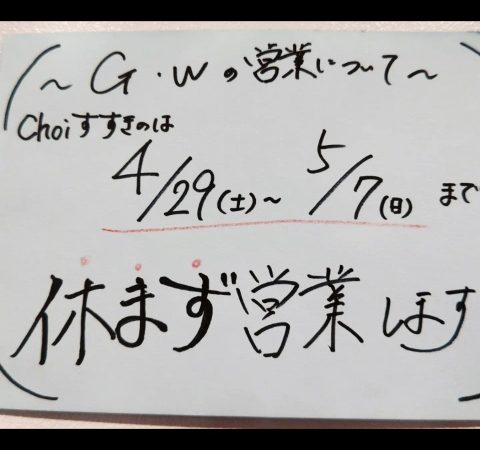 ～G・Wの営業について～
Choiすすきのは
4/29(土)～5/7(日)まで
休まず営業します